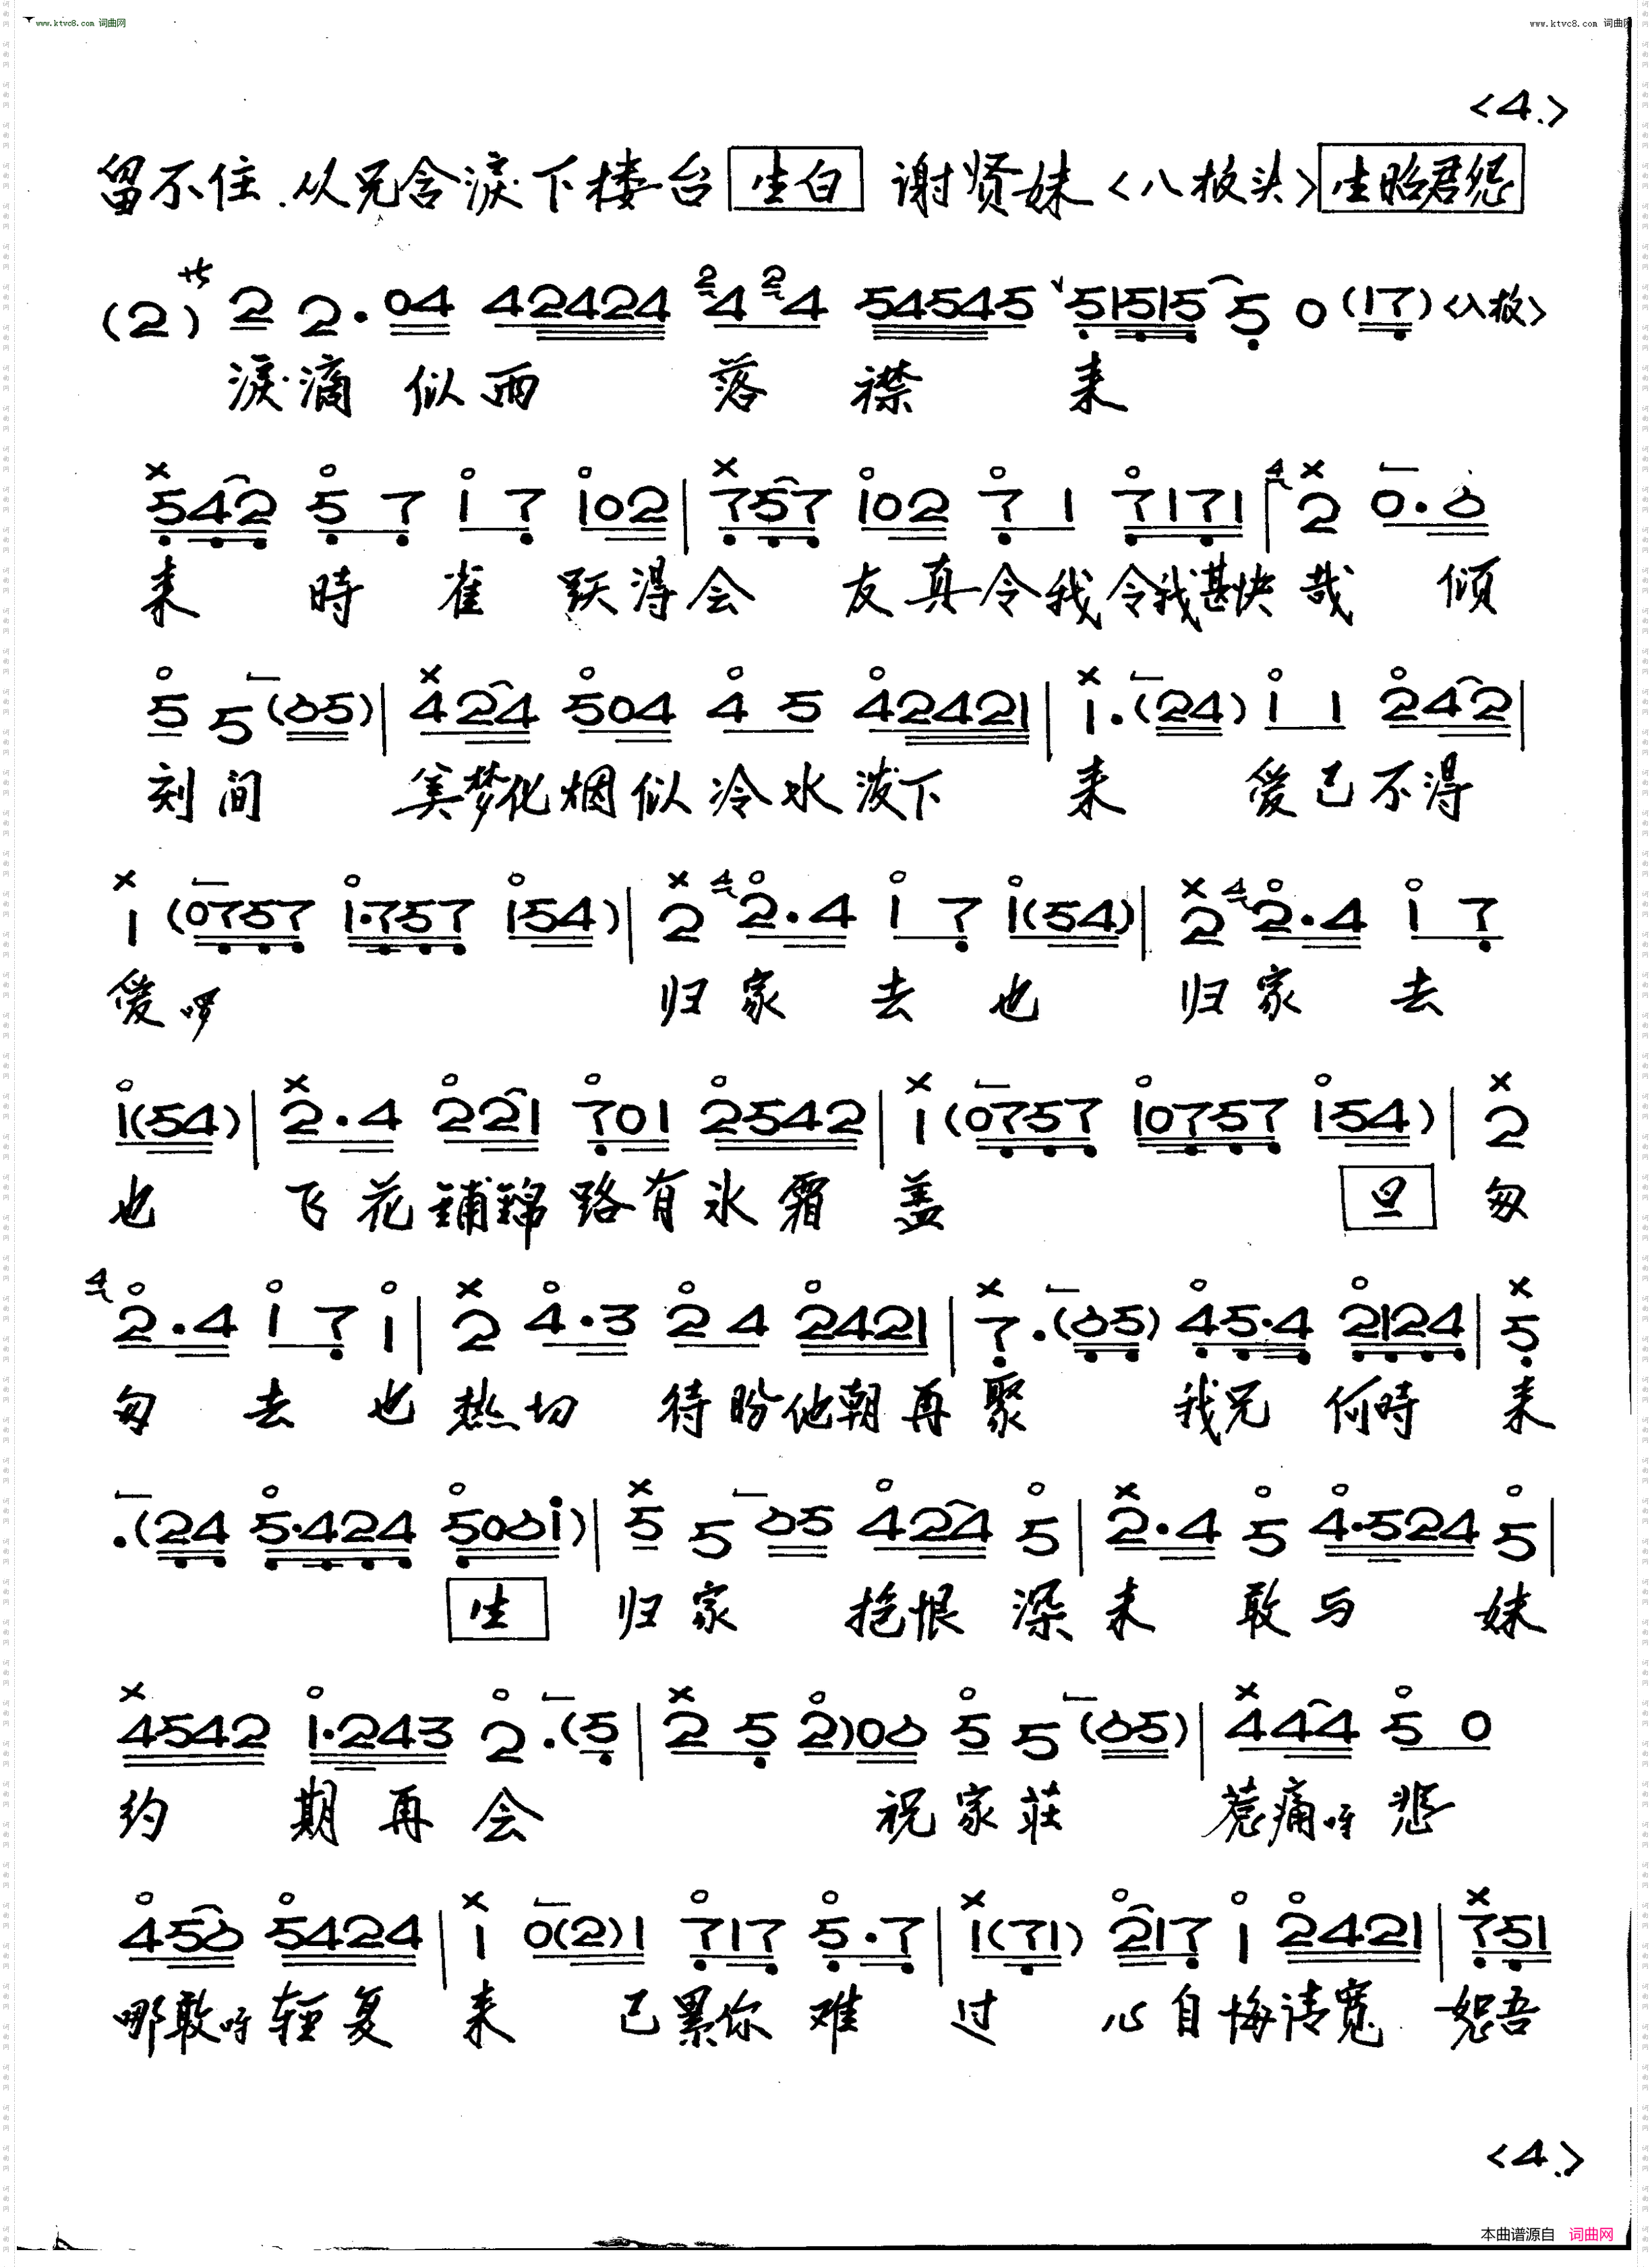 www.ktvc8.com 词曲网
www.ktvc8.com 词曲网
<4.>
留不住.从兄含淚下楼台 生白 谢贤妹<八板头> 生昭君怨
(2) サ 2 2·04 42424 2 4 2 4 54545 51515 5 0 (17) <八板>
淚滴似雨落襟来
× 542 ○ 5 7 ○ 1 7 ○ 102 | × 757 ○ 102 ○ 7 1 ○ 7171 | 4 × 2 0·6
来時雀跃得会友真令我令我甚快哉倾
○ 5 5 (65) | × 424 ○ 504 ○ 4 5 ○ 42421 | × 1·(24) ○ 1 1 ○ 242 |
刻间美梦化烟似冷水泼下来爱已不得
× 1 (0757 ○ 1·757 ○ 154) | × 2 4 ○ 2·4 ○ 1 7 ○ 1(54) | × 2 4 ○ 2·4 ○ 1 7
爱啰归家去也归家去
○ 1(54) | × 2·4 ○ 221 ○ 701 ○ 2542 | × 1 (0757 ○ 10757 ○ 154) | × 2
也飞花铺锦路有氷霜盖 旦 匆
4 ○ 2·4 ○ 1 7 ○ 1 | × 2 ○ 4·3 ○ 2 4 ○ 2421 | × 7·(65) ○ 45·4 ○ 2124 | × 5
匆去也热切待盼他朝再聚我兄何時来
·(24 ○ 5·424 ○ 5061) | × 5 5 65 ○ 424 ○ 5 | × 2·4 ○ 5 ○ 4·524 ○ 5 |
生 归家抱恨深未敢与妹
× 4542 ○ 1·243 ○ 2·(5 | × 2 5 ○ 2)06 ○ 5 5 (65) | × 444 ○ 5 0
约期再会祝家莊惹痛呀悲
○ 456 ○ 5424 | × 1 0(2)1 ○ 717 ○ 5·7 | × 1(71) ○ 217 ○ 1 ○ 2421 | × 751
哪敢呀轻复来已累你难过心自悔请寬恕吾
<4.>
本曲谱源自 词曲网